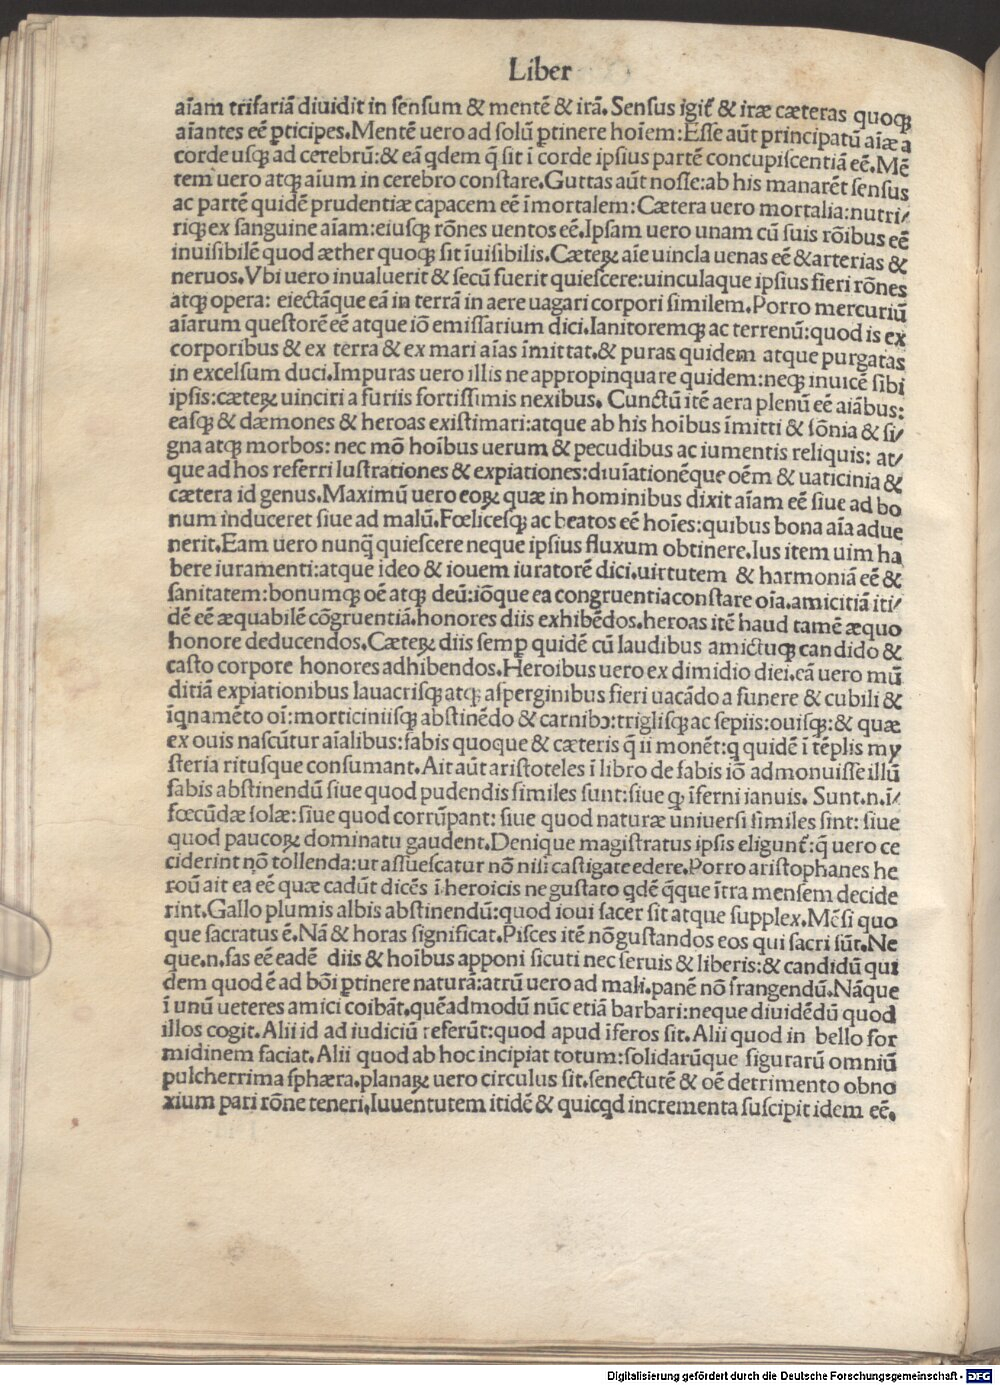 Liber
aīam trifariā diuidit in sensum & mentē & irā. Sensus igit̄ & iræ cæteras quoqꝫ
aīantes eē ꝑticipes. Mentē uero ad solū ꝑtinere hoīem: Esse aūt principatū aīæ a
corde usqꝫ ad cerebrū: & eā qdem q̄ sit ī corde ipsius partē concupiscentiā eē. Mē
tem uero atqꝫ aīum in cerebro constare. Guttas aūt nosse: ab his manarēt sensus
ac partē quidē prudentiæ capacem eē īmortalem: Cætera uero mortalia: nutri/
riqꝫ ex sanguine aīam: eiusqꝫ rōnes uentos eē. Ipsam uero unam cū suis rōibus eē
inuisibilē quod æther quoqꝫ sit īuisibilis. Cæteꝝ aīe uincla uenas eē & arterias &
neruos. Vbi uero inualuerit & secū fuerit quiescere: uinculaque ipsius fieri rōnes
atqꝫ opera: eiectāque eā in terrā in aere uagari corpori similem. Porro mercuriū
aīarum questorē eē atque iō emissarium dici. Ianitoremqꝫ ac terrenū: quod is ex
corporibus & ex terra & ex mari aīas īmittat. & puras quidem atque purgatas
in excelsum duci. Impuras uero illis ne appropinquare quidem: neqꝫ inuicē sibi
ipsis: cæteꝝ uinciri a furiis fortissimis nexibus. Cunctū itē aera plenū eē aiābus:
easqꝫ & dæmones & heroas existimari: atque ab his hoibus īmitti & sōnia & si/
gna atqꝫ morbos: nec mō hoībus uerum & pecudibus ac iumentis reliquis: at/
que ad hos referri lustrationes & expiationes: diuīationēque oēm & uaticinia &
cætera id genus. Maximū uero eoꝝ quæ in hominibus dixit aīam eē siue ad bo
num induceret siue ad malū. Fœlicesqꝫ ac beatos eē hoīes: quibus bona aīa adue
nerit. Eam uero nunq̄ quiescere neque ipsius fluxum obtinere. Ius item uim ha
bere iuramenti: atque ideo & iouem iuratorē dici. uirtutem & harmoniā eē &
sanitatem: bonumqꝫ oē atqꝫ deū: iōque ea congruentia constare oīa. amicitiā iti/
dē eē æquabilē cōgruentiā. honores diis exhibēdos. heroas itē haud tamē æquo
honore deducendos. Cæteꝝ diis semꝑ quidē cū laudibus amictuqꝫ candido &
casto corpore honores adhibendos. Heroibus uero ex dimidio diei. eā uero mū
ditiā expiationibus lauacrisqꝫ atqꝫ asperginibus fieri uacādo a funere & cubili &
īqnamēto oī: morticiniisqꝫ abstinēdo & carnibꝰ: triglisqꝫ ac sepiis: ouisqꝫ: & quæ
ex ouis nascūtur aīalibus: fabis quoque & cæteris q̄ ii monēt: q quidē ī tēplis my
steria ritusque consumant. Ait aūt aristoteles ī libro de fabis iō admonuisse illū
fabis abstinendū siue quod pudendis similes sunt: siue qꝫ īferni ianuis. Sunt.n.ī/
fœcūdæ solæ: siue quod corrūpant: siue quod naturæ uniuersi similes sint: siue
quod paucoꝝ dominatu gaudent. Denique magistratus ipsis eligunt̄: q̄ uero ce
ciderint nō tollenda: ut assuescatur nō nisi castigate edere. Porro aristophanes he
roū ait ea eē quæ cadūt dicēs ī heroicis ne gustato qdē q̄que ītra mensem decide
rint. Gallo plumis albis abstinendū: quod ioui sacer sit atque supplex. Mēsi quo
que sacratus ē. Nā & horas significat. Pisces itē nō gustandos eos qui sacri sūt. Ne
que.n.fas eē eadē diis & hoībus apponi sicuti nec seruis & liberis: & candidū qui
dem quod ē ad bōi ꝑtinere naturā: atrū uero ad mali. panē nō frangendū. Nāque
ī unū ueteres amici coibāt. quēadmodū nūc etiā barbari: neque diuidēdū quod
illos cogit. Alii id ad iudiciū referūt: quod apud īferos sit. Alii quod in bello for
midinem faciat. Alii quod ab hoc incipiat totum: solidarūque figurarū omniū
pulcherrima sphæra. planaꝝ uero circulus sit. senectutē & oē detrimento obno
xium pari rōne teneri. Iuuentutem itidē & quicqd incrementa suscipit idem eē.
Digitalisierung gefördert durch die Deutsche Forschungsgemeinschaft - DFG